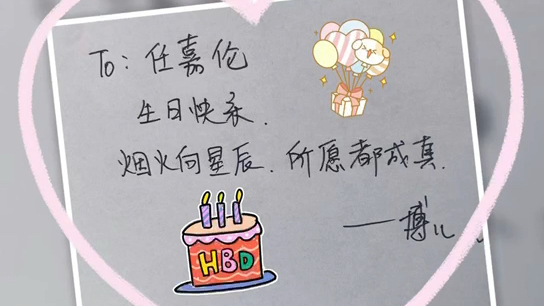 To: 任嘉伦
生日快乐.
烟火向星辰. 所愿都成真.
——博儿
HBD